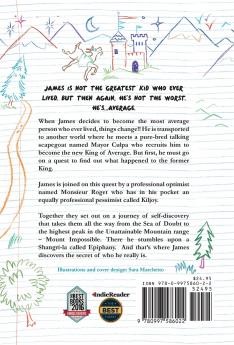 JAMES IS NOT THE GREATEST KID WHO EVER
LIVED. BUT THEN AGAIN, HE'S NOT THE WORST.
HE'S...AVERAGE.
When James decides to become the most average
person who ever lived, things change!! He is transported
to another world where he meets a pure-bred talking
scapegoat named Mayor Culpa who recruits him to
become the new King of Average. But first, he must go
on a quest to find out what happened to the former
King.
James is joined on this quest by a professional optimist
named Monsieur Roget who has in his pocket an
equally professional pessimist called Kiljoy.
Together they set out on a journey of self-discovery
that takes them all the way from the Sea of Doubt to
the highest peak in the Unattainable Mountain range
– Mount Impossible. There he stumbles upon a
Shangri-la called Epiphany. And that's where James
discovers the secret of who he really is.
Illustrations and cover design: Sara Marchesco
$24.95
ISBN 978-0-9975860-2-2
52495
BOOKS
2016
IndieReader
BEST
9 780997 586022